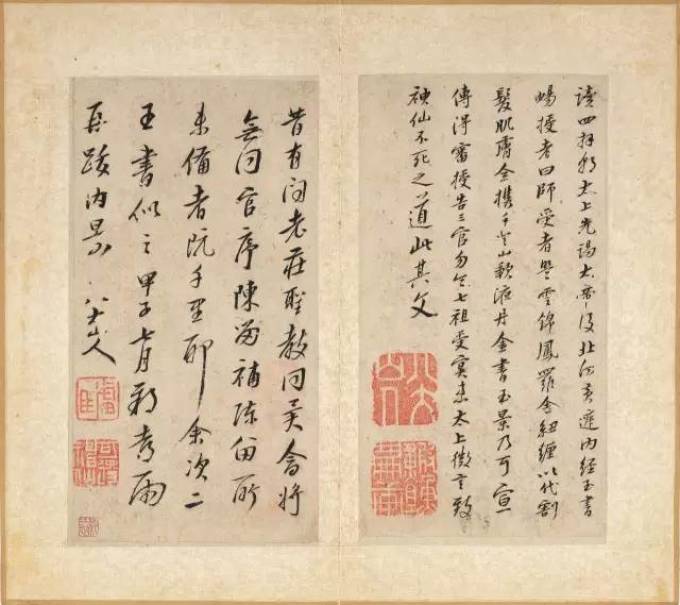 讀四拜朝太上先謁太帝後北向黃庭內經玉書
暢授者曰師受者盟雲錦鳳羅金紐纏以代割
髮肌膚全攜手登山歃液丹金書玉景乃可宣
傳得審授告三官勿令七祖受冥患太上微言致
神仙不死之道此其文
昔有問老莊聖教同異會將
無同官序陳留補陳留所
未備者既千里耶余次二
王書似之甲子七月新雨
再跋內景 八大山人